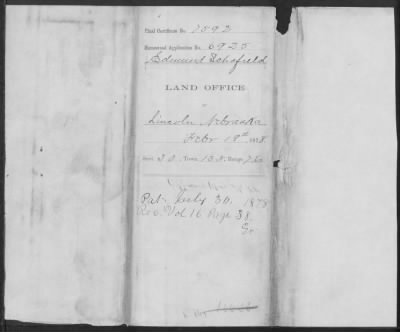 Final Certificate No. 7592
Homestead Application No. 6925
Edmund Schofield
LAND OFFICE
Lincoln Nebraska
Febr 18th 1878
Sect. 30 Town. 13 N. Range. 7 E.
Pat. July 30, 1878
Rec. Vol 16 Page 38